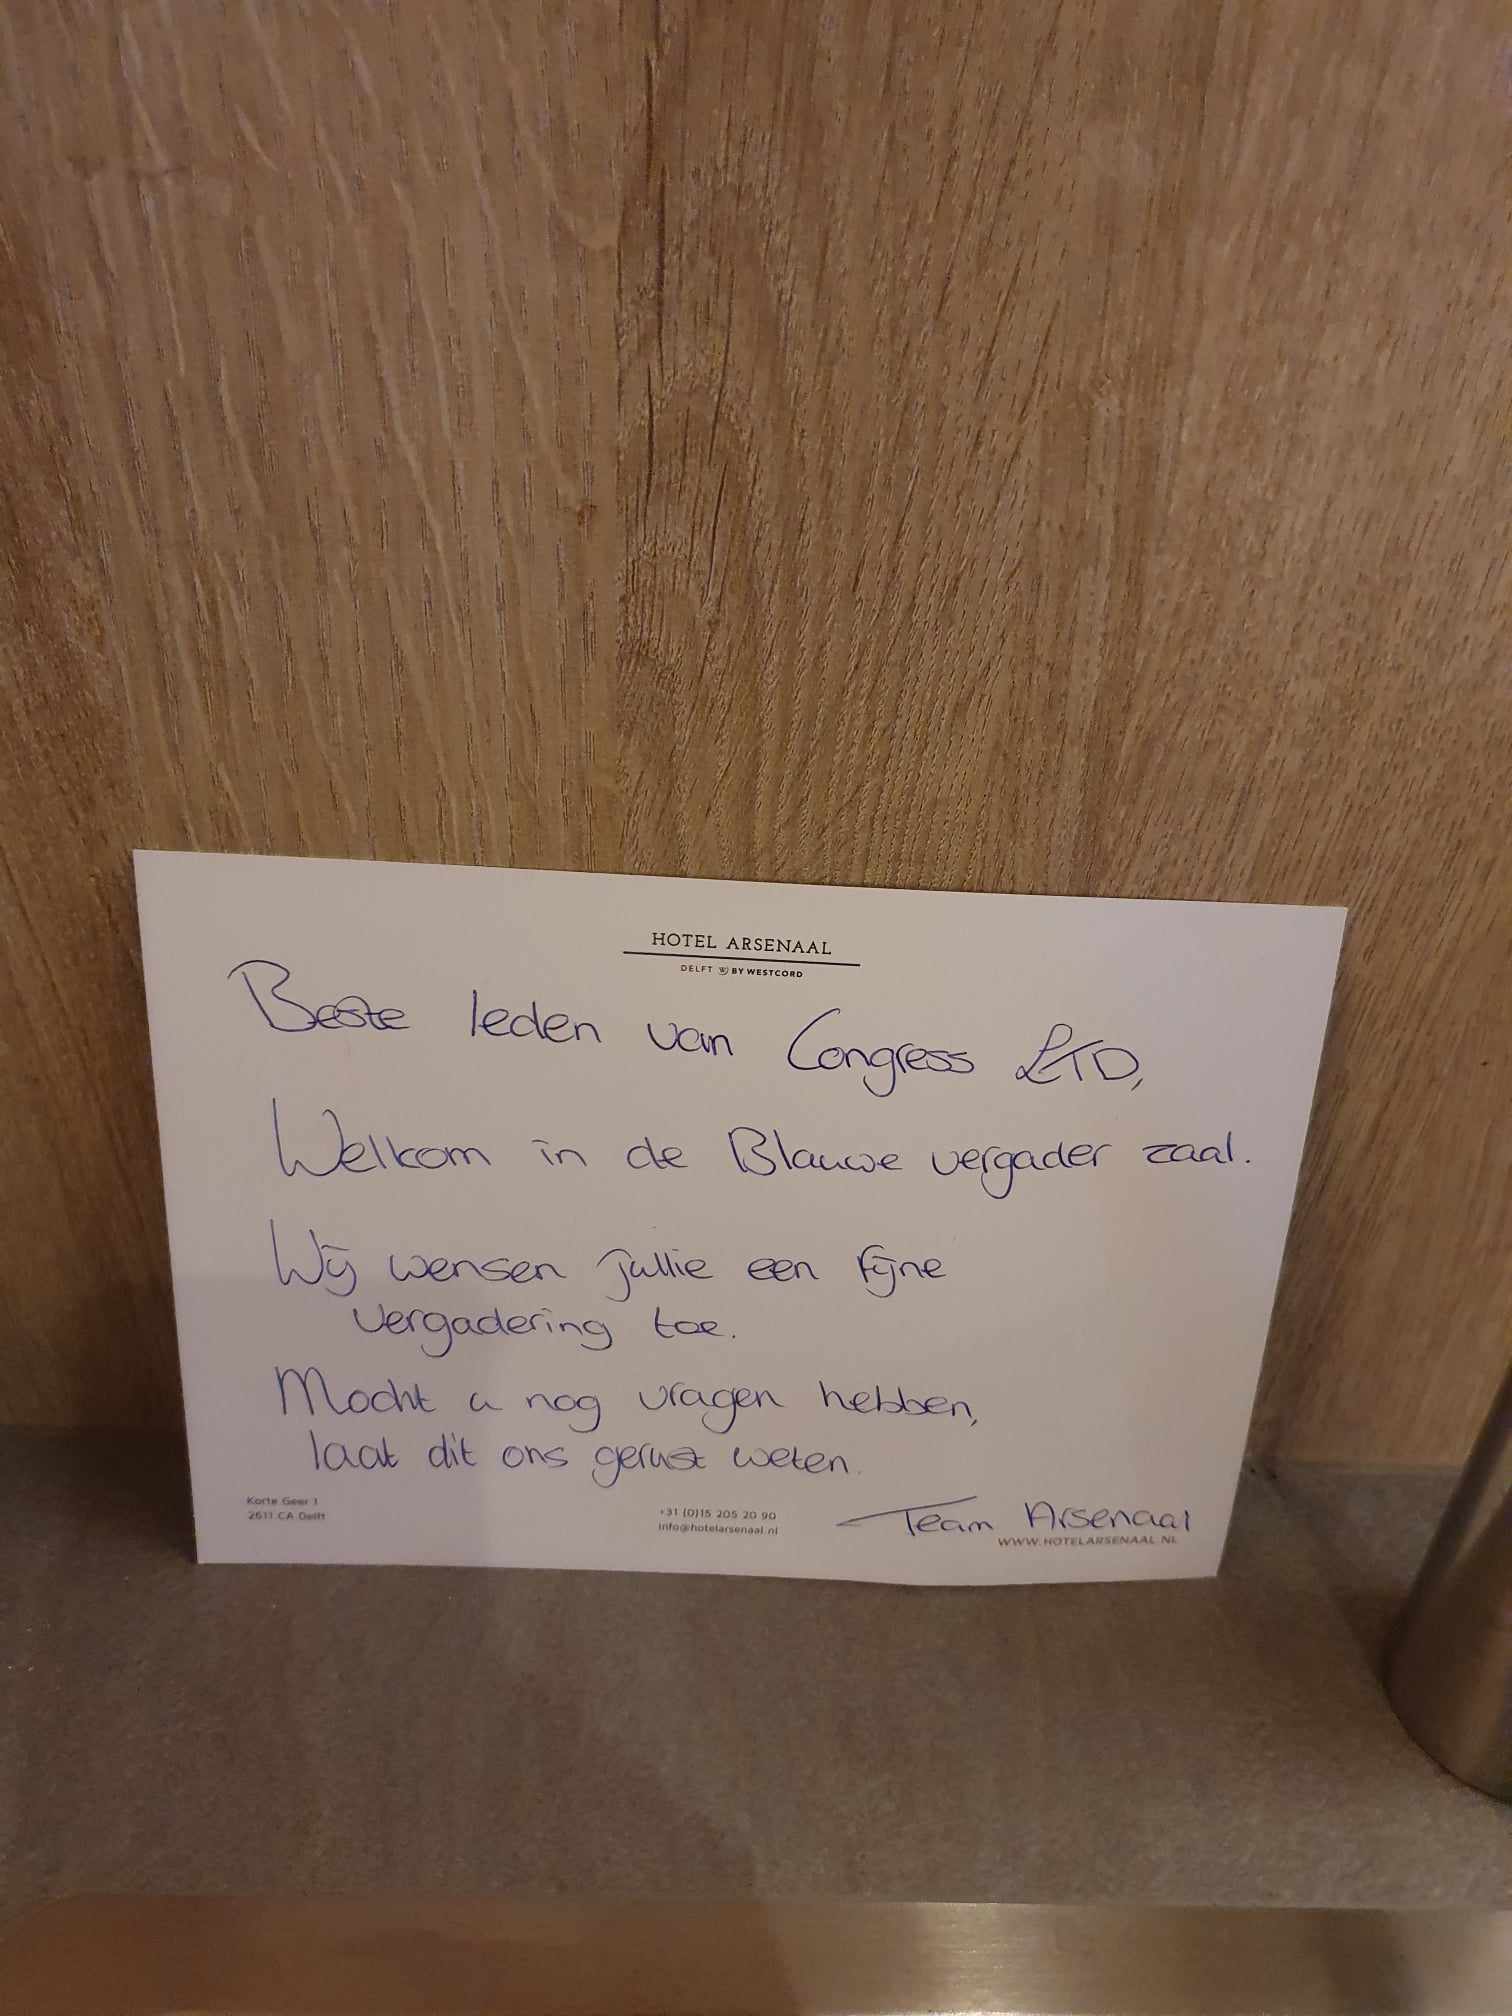 HOTEL ARSENAAL
DELFT BY WESTCORD
Beste leden van Congress LTD,
Welkom in de Blauwe vergader zaal.
Wij wensen jullie een fijne
vergadering toe.
Mocht u nog vragen hebben,
laat dit ons gerust weten.
Team Arsenaal
Korte Geer 1
2611 CA Delft
+31 (0)15 205 20 90
info@hotelarsenaal.nl
WWW.HOTELARSENAAL.NL